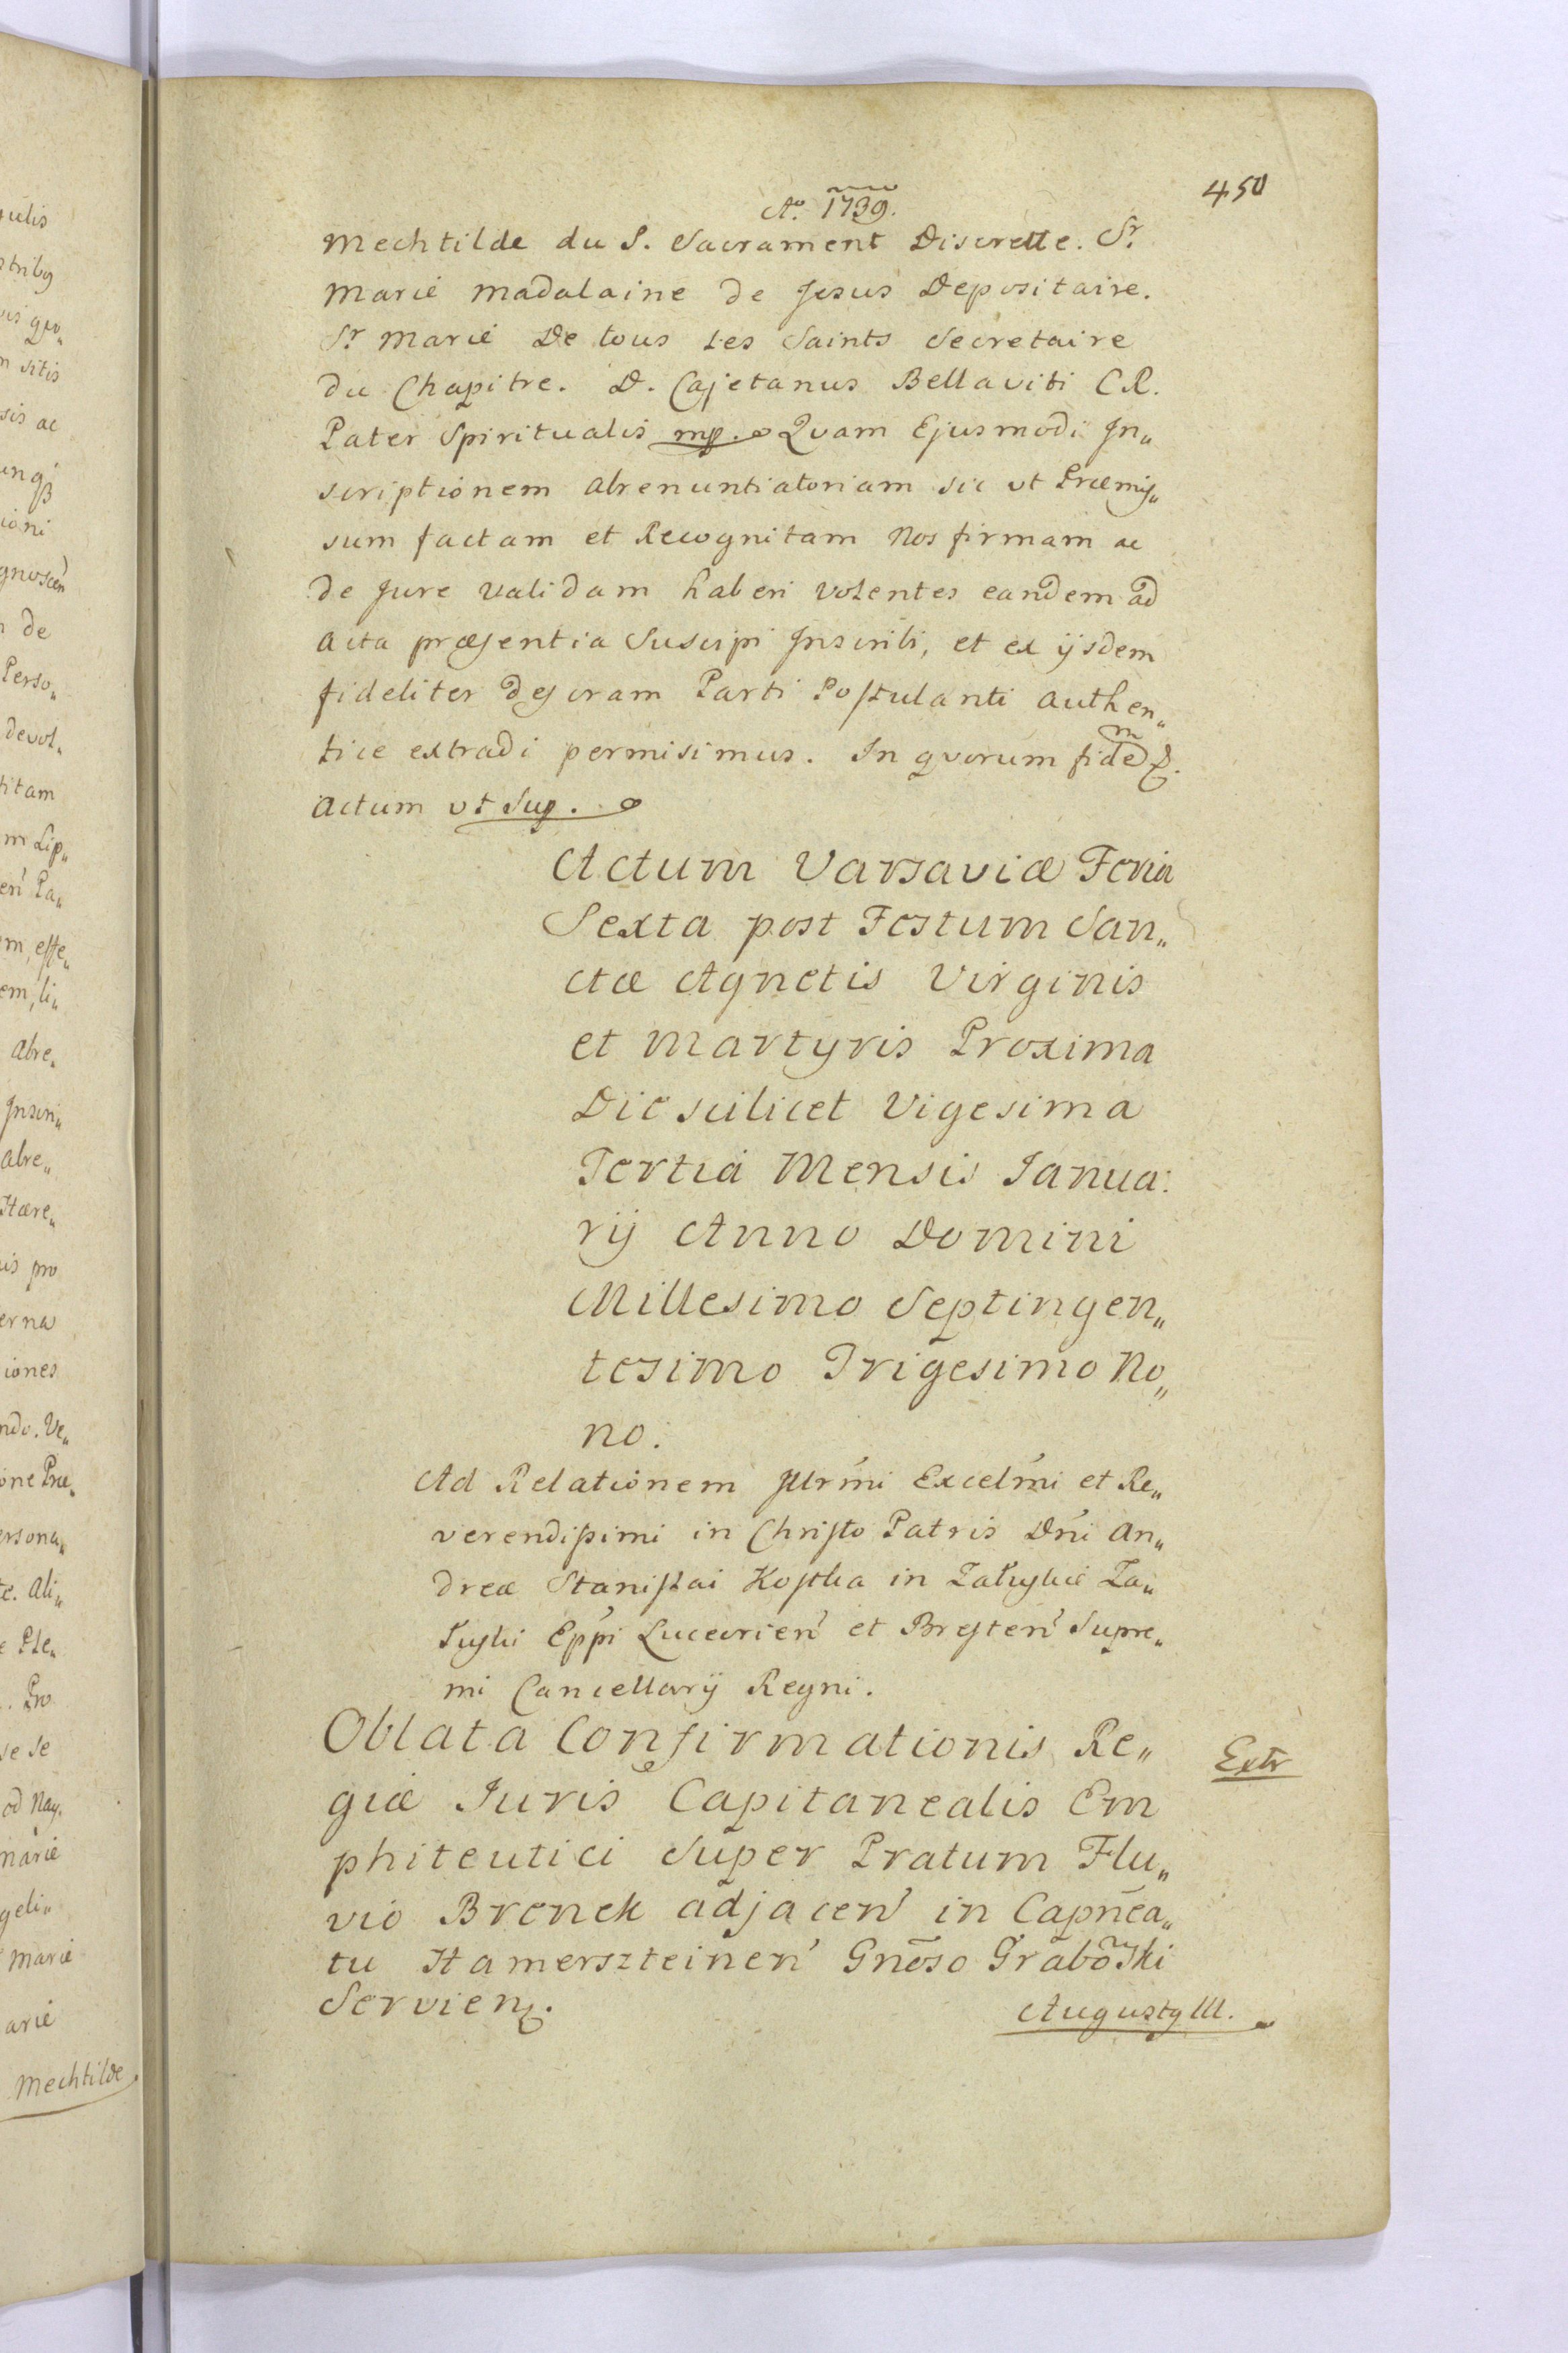 450
Ao. 1739.
Mechtilde du S. Sacrament Discrette. Sr.
Marie Madalaine de Jesus Depositaire.
Sr Marie De tous Les Saints Secretaire
du Chapitre. D. Cajetanus Bellaviti C R.
Pater Spiritualis mp. Quam Ejusmodi In„
scriptionem Abrenuntiatoriam sic ut Præmis„
sum factam et Recognitam Nos firmam ac
de Jure validam haberi volentes eandem ad
Acta præsentia Suscipi Inscribi, et ex ijsdem
fideliter descram Parti Postulanti Authen„
tice extradi permisimus. In quorum fidem
Actum ut Sup.
Actum Varsaviæ Feria
Sexta post Festum San„
ctæ Agnetis Virginis
et Martyris Proxima
Die scilicet Vigesima
Tertia Mensis Janua:
rij Anno Domini
Millesimo Septingen„
tesimo Trigesimo No„
no.
Ad Relationem Illrmi Excelmi et Re„
verendissimi in Christo Patris Dni An„
dreæ Stanislai Kostka in Załuskie Za„
łuski Eppi Luceorien et Bresten Supre„
mi Cancellarij Regni.
Oblata Confirmationis Re„
giæ Juris Capitanealis Em
phiteutici Super Pratum Flu„
vio Brenek adjacen in Capnea„
tu Hamerszteinen Gnoso Grabowski
Servien.
Extr
Augustg III.
gulis
n sitis
sis ac
ioni
de
Perso„
devol„
titam
Abre„
Abre„
Hære„
is pro
iones
ndo. Ve„
one Præ„
Pro
se se
od Nay.
Marie
arie
Mechtilde